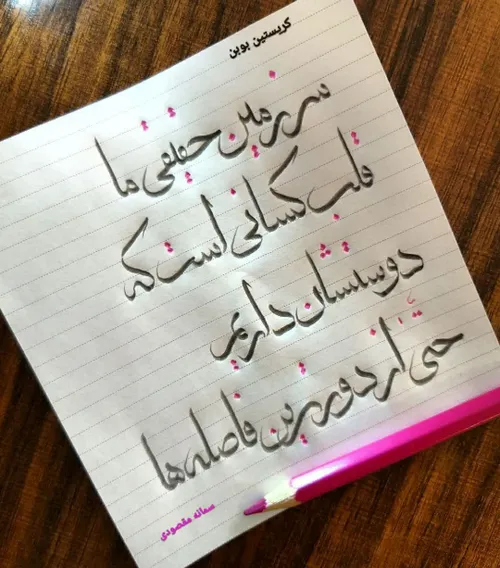 کریستین بوبن
سرزمین حقیقی ما
قلب کسانی است که
دوستشان داریم
حتی از دورترین فاصله ها
سمانه مقصودی